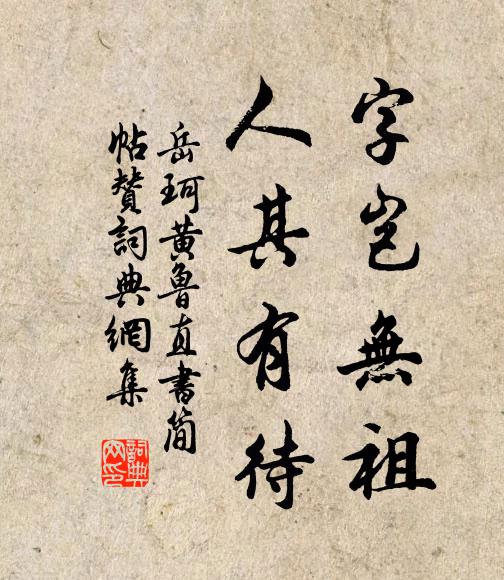 字岂無祖
人其有待
岳珂黄魯直書简
帖贊詞典網集
詞典网印